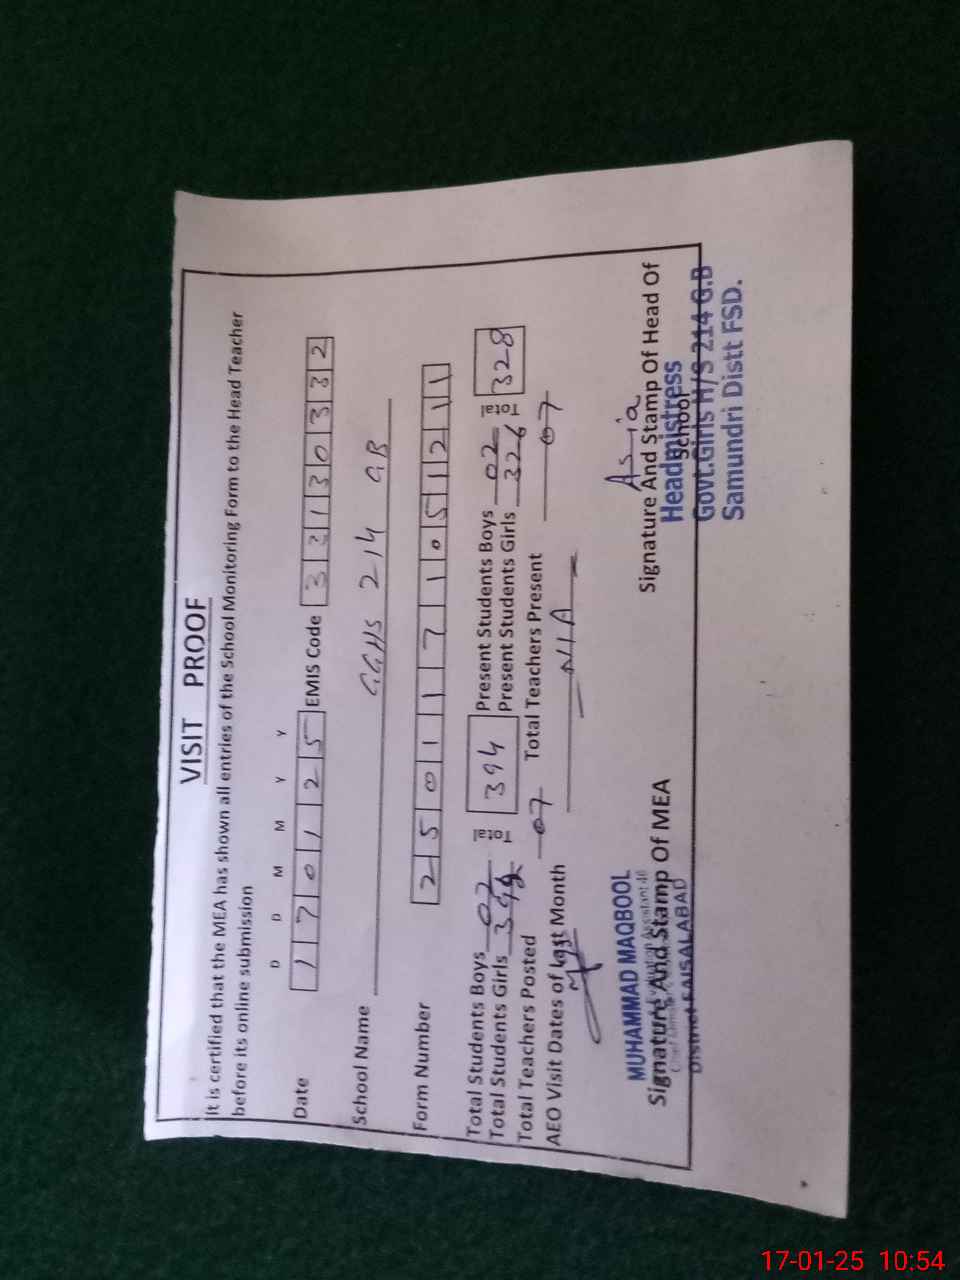 VISIT PROOF
It is certified that the MEA has shown all entries of the School Monitoring Form to the Head Teacher
before its online submission
D D M M Y Y
Date 1 7 0 1 2 5 EMIS Code 3 3 1 3 0 3 3 2
School Name GGHS 214 GB
Form Number 2 5 0 1 1 7 1 0 5 1 2 1 1
Total Students Boys 02 Total 394 Present Students Boys 02 Total 328
Total Students Girls 392 Present Students Girls 326
Total Teachers Posted 07 Total Teachers Present 07
AEO Visit Dates of last Month N/A
Asia
MUHAMMAD MAQBOOL
Signature And Stamp Of MEA
District FAISALABAD
Signature And Stamp Of Head Of
School
Headmistress
Govt.Girls H/S 214 G.B
Samundri Distt FSD.
17-01-25 10:54